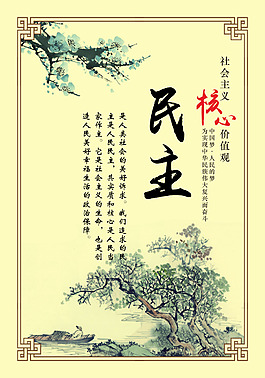 社会主义
核心价值观
中国梦·人民的梦
为实现中华民族伟大复兴而奋斗
民主
是人类社会的美好诉求。我们追求的民
主是人民民主,其实质和核心是人民当
家作主。它是社会主义的生命,也是创
造人民美好幸福生活的政治保障。